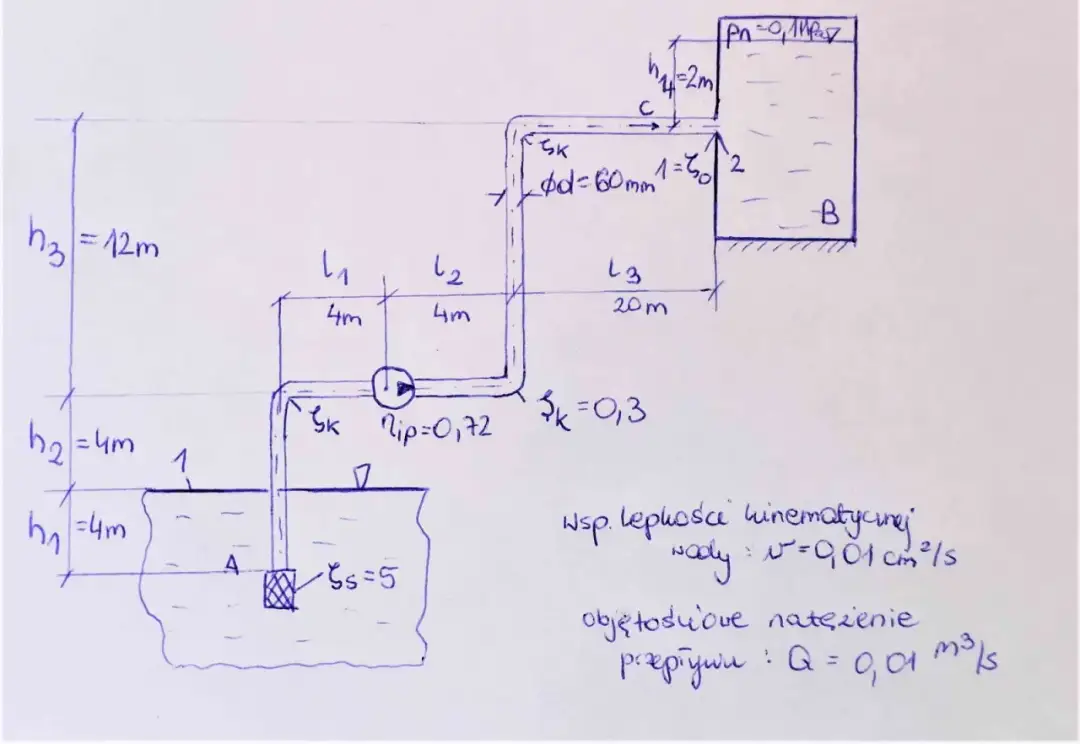 pn=0,1MPa
h4=2m
c
ζk
1=ζo
2
ϕd=60mm
B
h3=12m
l1
4m
l2
4m
l3
20m
ζk
ηip=0,72
ζk=0,3
h2=4m
1
h1=4m
A
ζs=5
wsp. lepkości kinematycznej
wody : ν=0,01 cm²/s
objętościowe natężenie
przepływu : Q = 0,01 m³/s